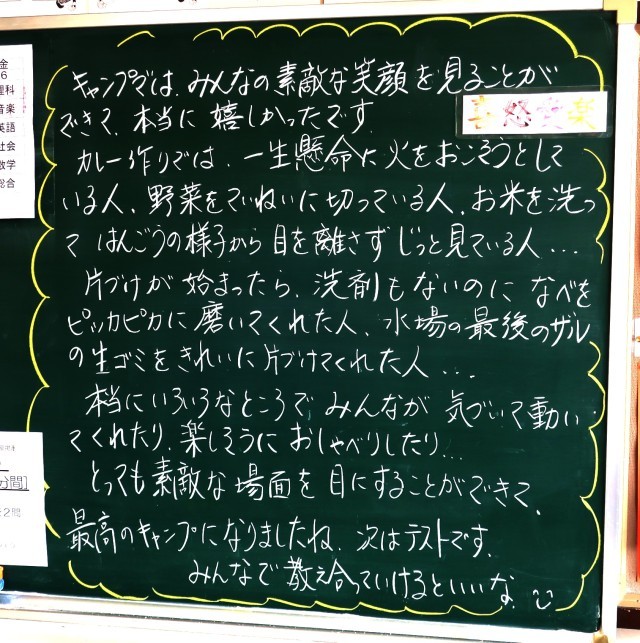 キャンプでは、みんなの素敵な笑顔を見ることが
できて、本当に嬉しかったです。
カレー作りでは、一生懸命に火をおこそうとして
いる人、野菜をていねいに切っている人、お米を洗っ
てはんごうの様子から目を離さずじっと見ている人…
片づけが始まったら、洗剤もないのになべを
ピッカピカに磨いてくれた人、水場の最後のザル
の生ゴミをきれいに片づけてくれた人…
本当にいろいろなところでみんなが気づいて動い
てくれたり、楽しそうにおしゃべりしたり…
とっても素敵な場面を目にすることができて、
最高のキャンプになりましたね。次はテストです。
みんなで教え合っていけるといいな。
金
6
理科
音楽
英語
社会
数学
総合
分間]
2問